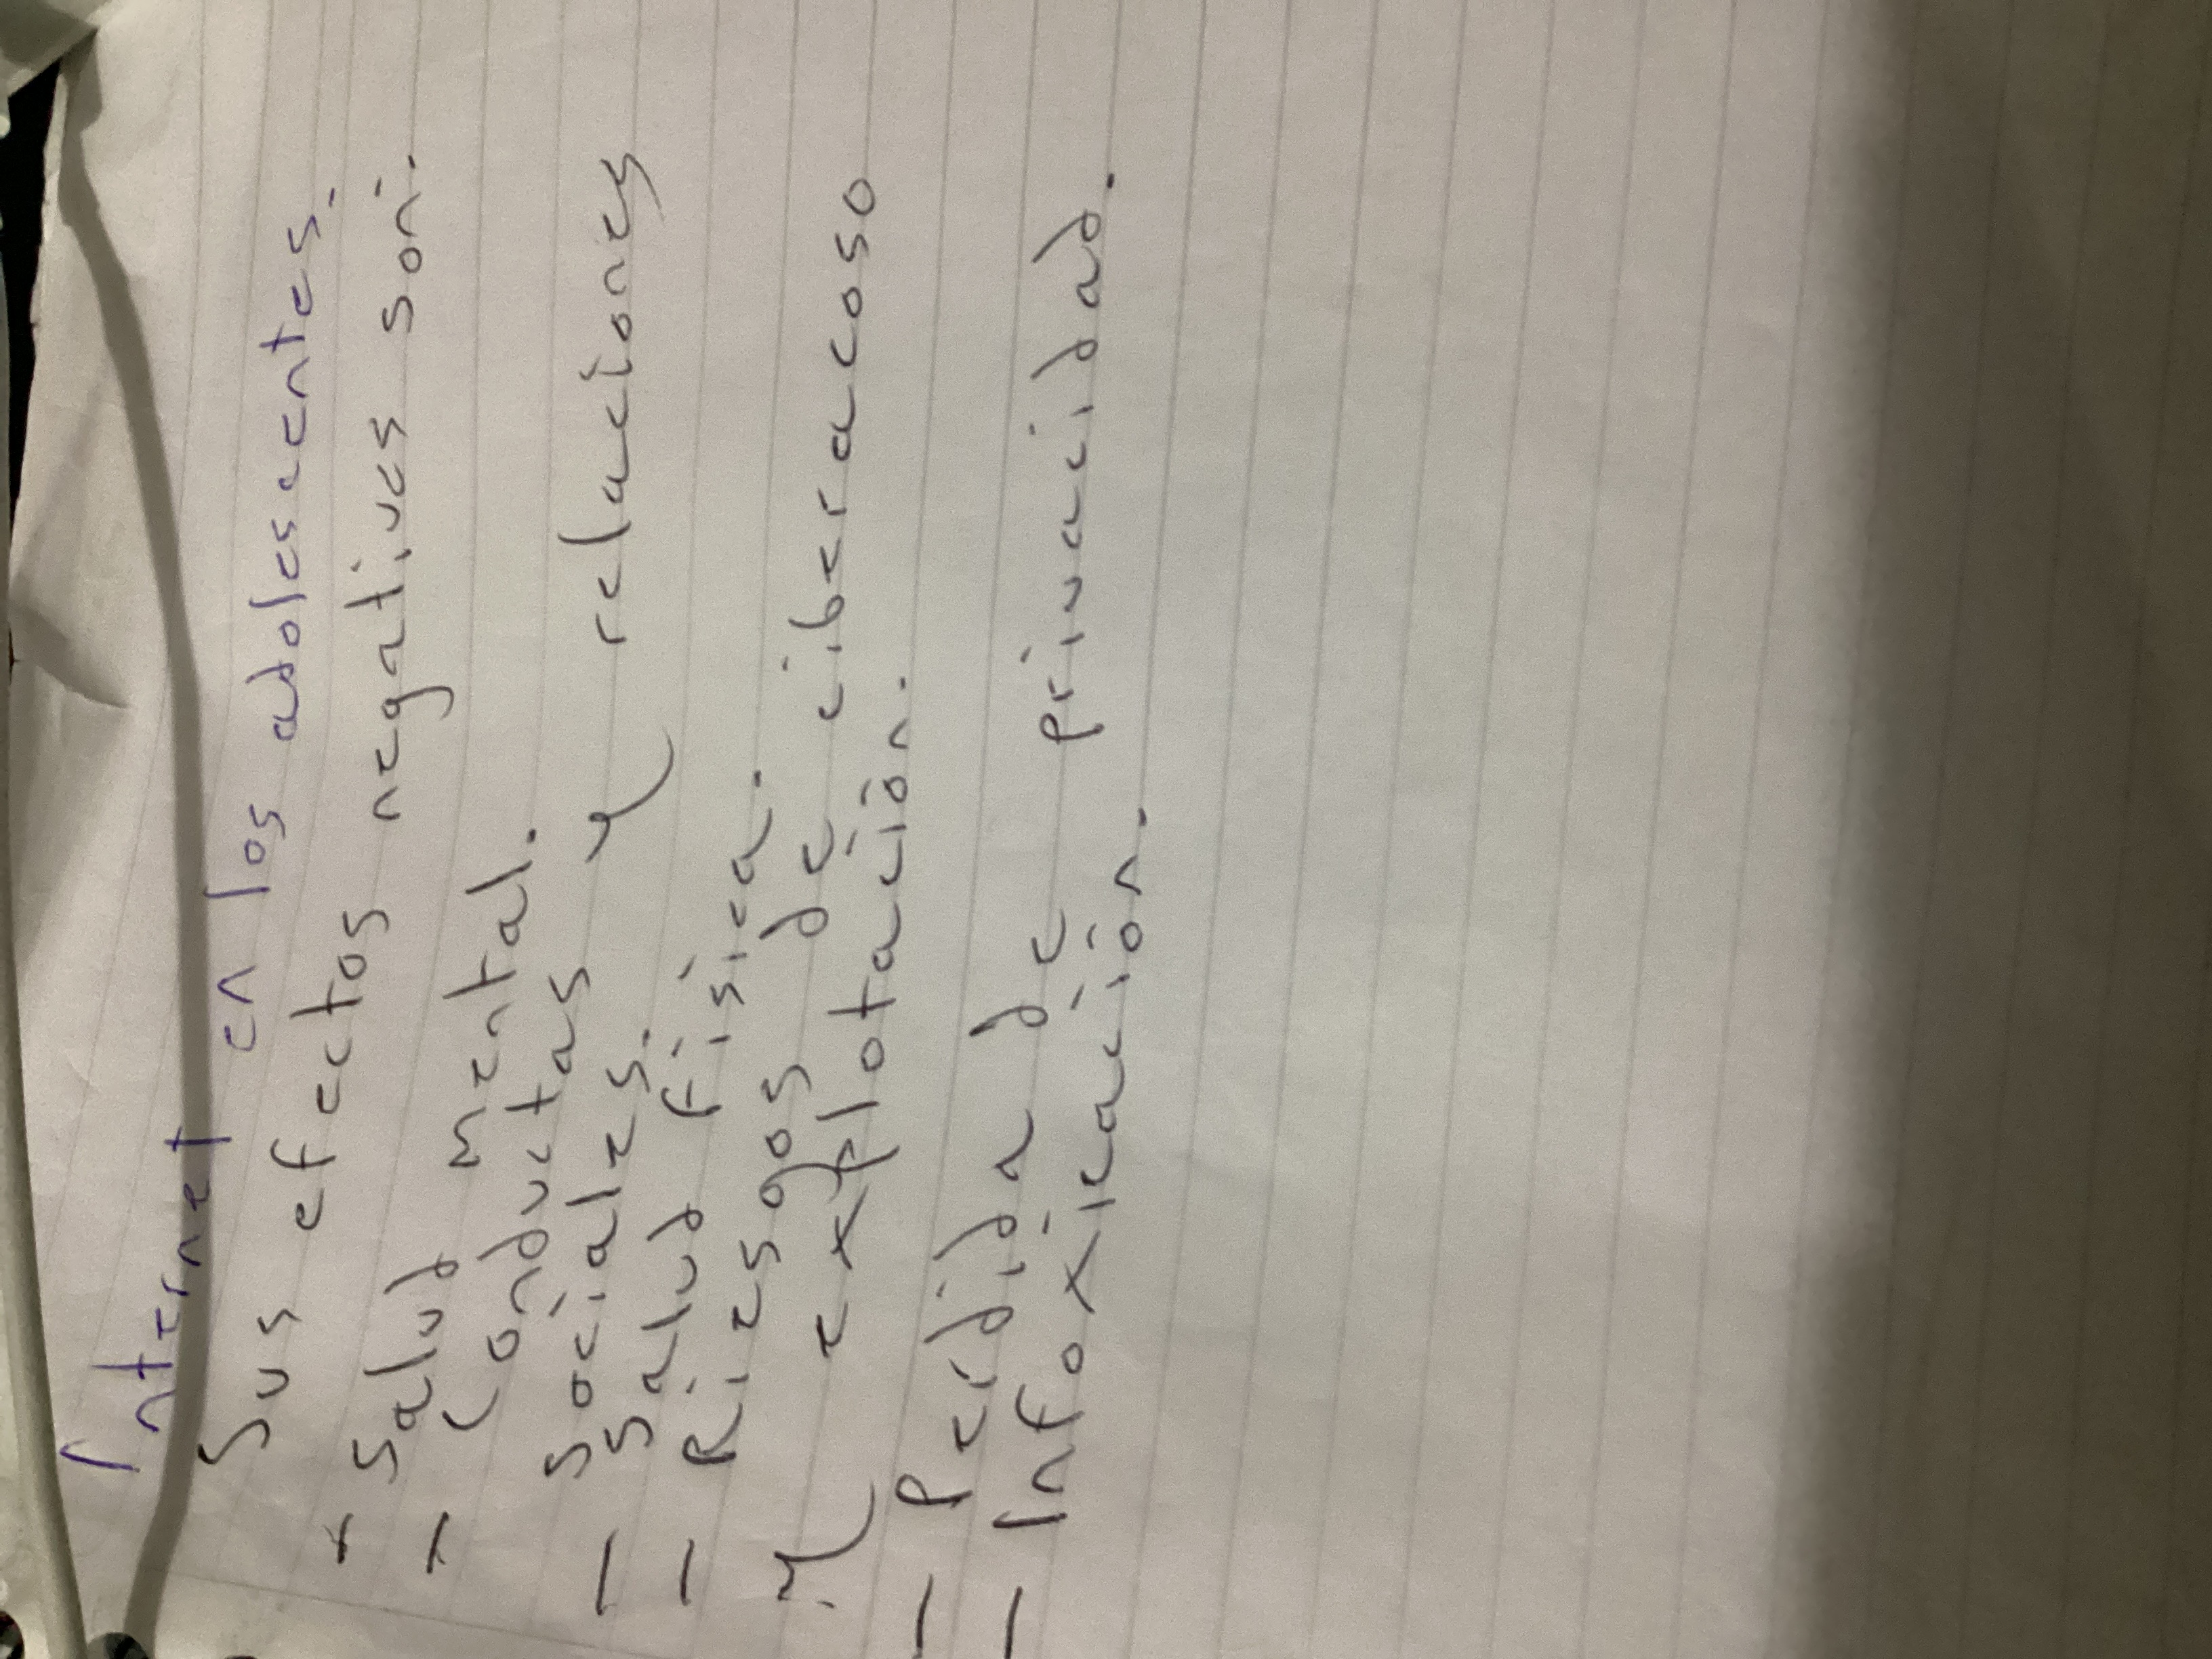 Internet en los adolescentes.
Sus efectos negativos son:
- Salud mental.
- Conductas y relaciones
sociales.
- Salud física.
- Riesgos de ciberacoso
y explotación.
- Perdida de privacidad.
- Infoxicación.